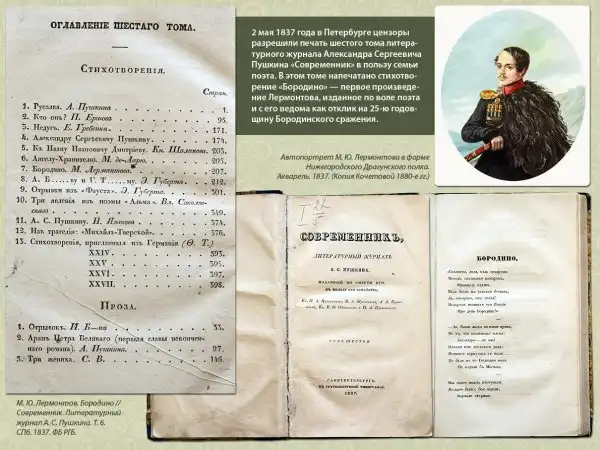 ОГЛАВЛЕНІЕ ШЕСТАГО ТОМА.
СТИХОТВОРЕНІЯ.
Стран.
1. Русалка. А. Пушкина 1.
2. Кто онъ? П. Ершова 95.
3. Недугъ. Е. Гребенки 171.
4. Александру Сергѣевичу Пушкину 174.
5. Къ Ивану Ивановичу Дмитріеву. Кн. Шаликова. 203.
6. Ангелу-Хранителю. М. де-Ларю. 205.
7. Бородино. М. Лермантова. 207.
8. А. Б ву и Г. Т ну. Э. Губера. 212.
9. Отрывки изъ «Фауста». Э. Губера. 301.
10. Три явленія изъ поэмы «Альма». Вл. Соколов-
скаго 319.
11. А. С. Пушкину. Н. Языкова 374.
12. Изъ трагедіи: «Михайлъ-Тверской». 376.
13. Стихотворенія, присланныя изъ Германіи (Ѳ. Т.)
XXIV 393.
XXV 395.
XXVI 397.
XXVII. 398.
ПРОЗА.
1. Отрывокъ. И. Б—на 53.
2. Арапъ Петра Великаго (первыя главы неокончен-
наго романа). А. Пушкина. 97.
3. Три жениха. С. В. 146.
М. Ю. Лермонтов. Бородино //
Современник. Литературный
журнал А. С. Пушкина. Т. 6.
СПб. 1837. ФБ РГБ.
2 мая 1837 года в Петербурге цензоры
разрешили печать шестого тома литера-
турного журнала Александра Сергеевича
Пушкина «Современник» в пользу семьи
поэта. В этом томе напечатано стихотво-
рение «Бородино» — первое произведе-
ние Лермонтова, изданное по воле поэта
и с его ведома как отклик на 25-ю годов-
щину Бородинского сражения.
Автопортрет М. Ю. Лермонтова в форме
Нижегородского Драгунского полка.
Акварель. 1837. (Копия Кочетовой 1880-е гг.)
СОВРЕМЕННИКЪ,
ЛИТЕРАТУРНЫЙ ЖУРНАЛЪ
А. С. ПУШКИНА,
ИЗДАННЫЙ ПО СМЕРТИ ЕГО
ТОМЪ ШЕСТЫЙ
САНКТПЕТЕРБУРГЪ.
1837.
БОРОДИНО.